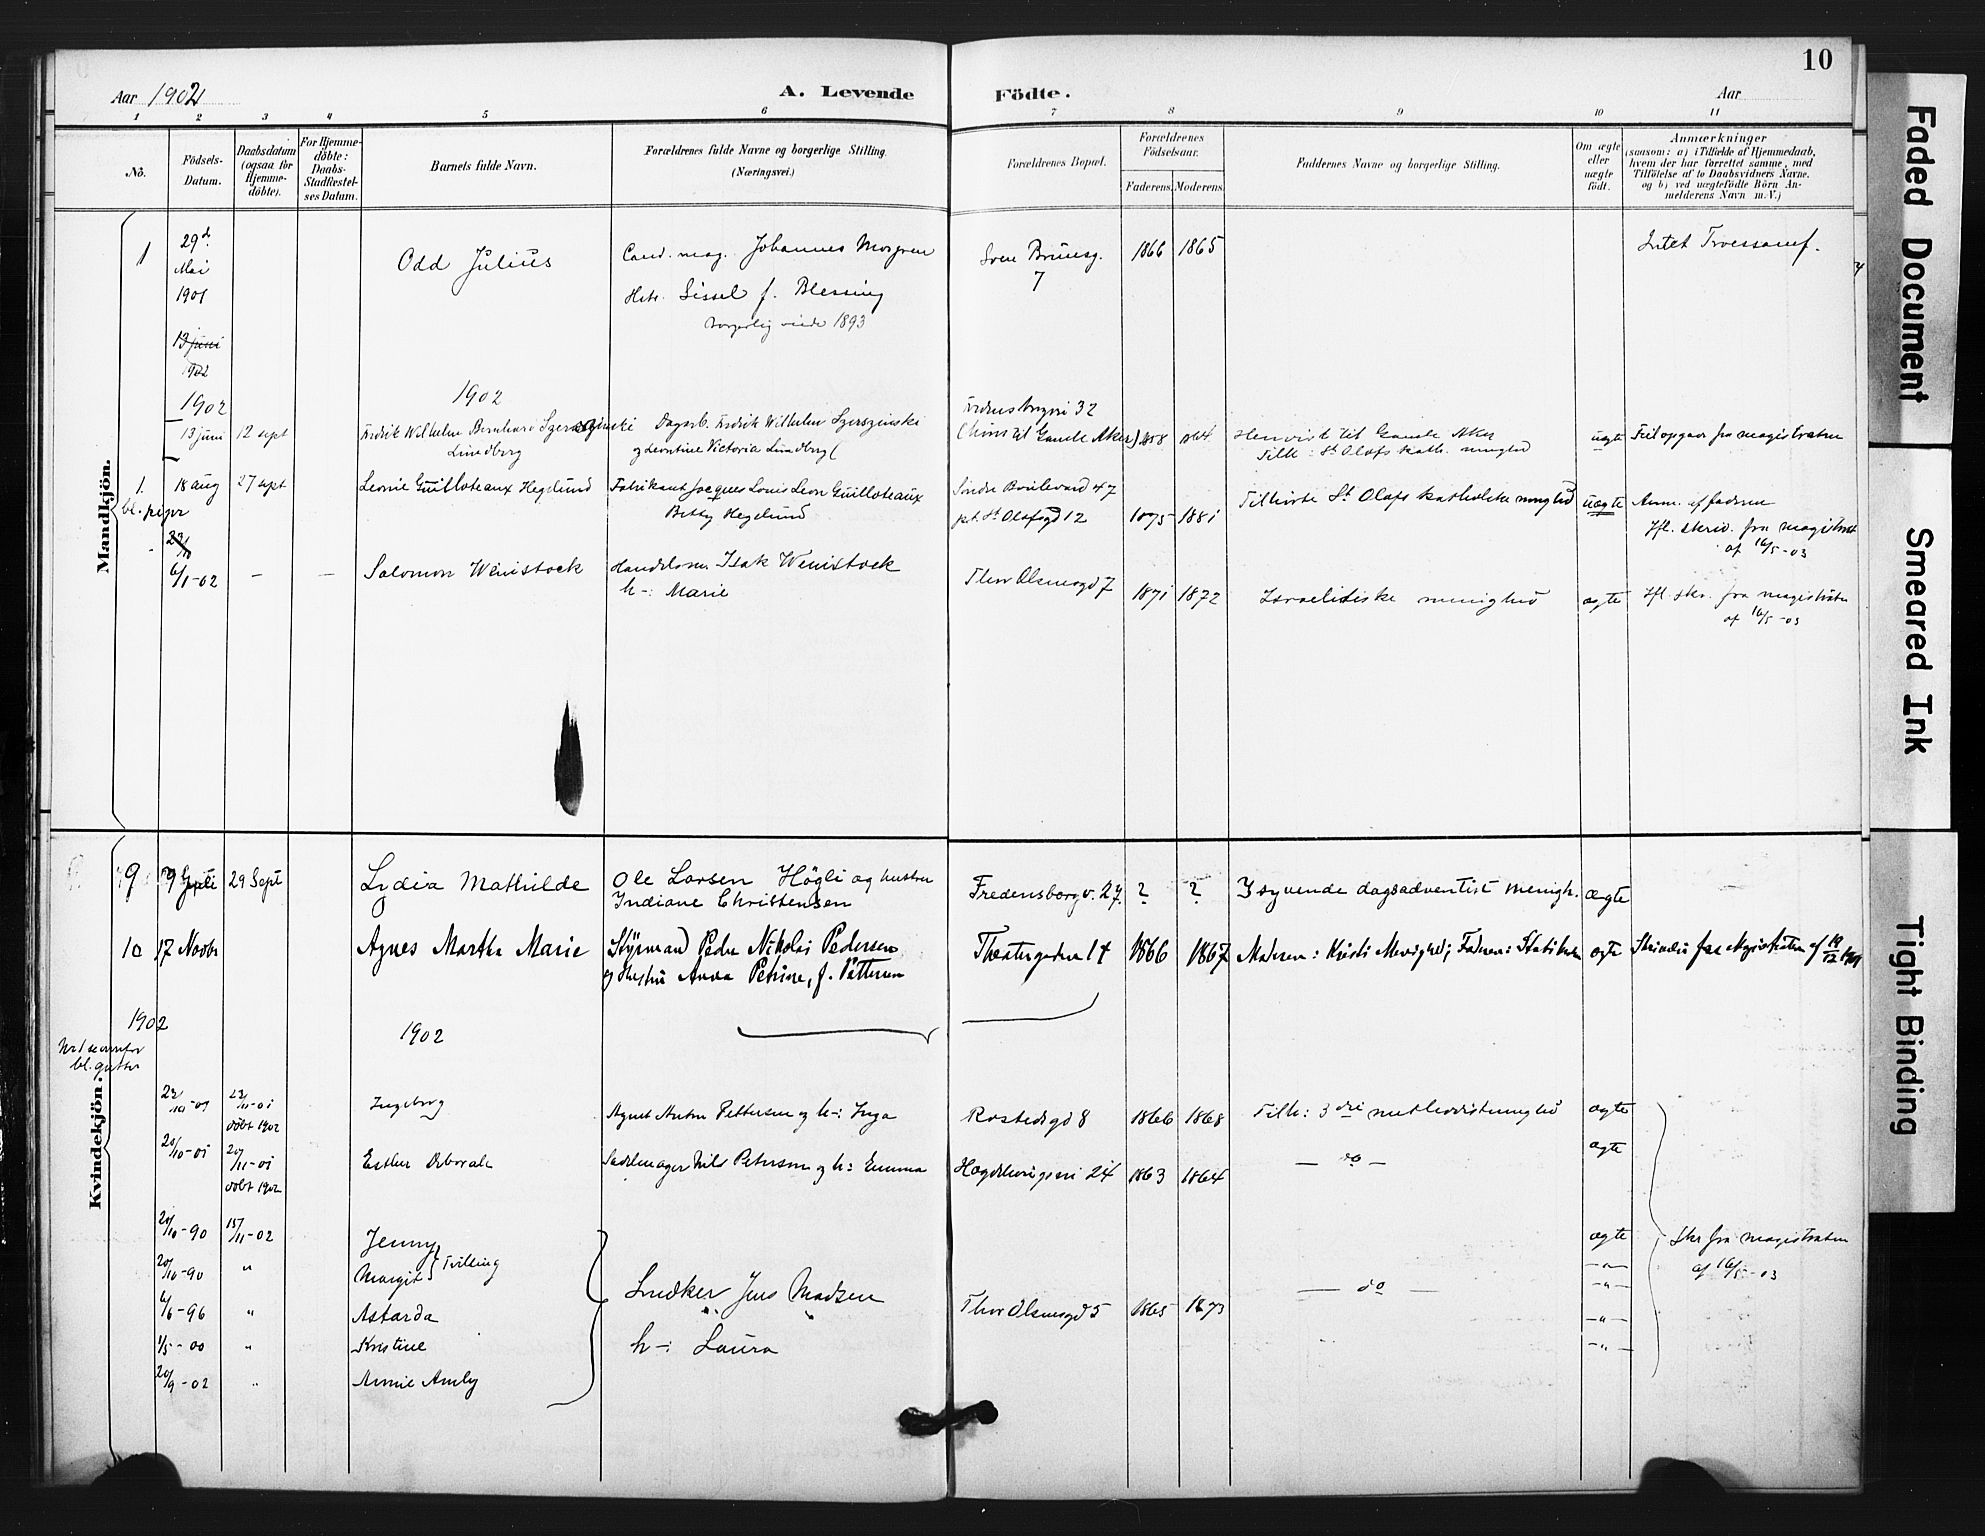 10
Aar 1902
A. Levende
Födte.
Aar
1 2 3 4 5 6 7 8 9 10 11
No.
Födsels-Datum.
Daabsdatum (ogsaa for Hjemme-döbte).
For Hjemme-döbte: Daabs-Stadfæstel-ses Datum.
Barnets fulde Navn.
Forældrenes fulde Navne og borgerlige Stilling.
(Næringsvei.)
Forældrenes Bopæl.
Forældrenes Födselsaar.
Faderens. Moderens.
Faddernes Navne og borgerlige Stilling.
Om ægte eller uægte födt.
Anmærkninger
(saasom: a) i Tilfælde af Hjemmedaab, hvem der har forrettet samme, med Tilföielse af to Daabsvidners Navne, og b) ved uægtefödte Börn An-melderens Navn m. V.)
Mandkjön.
1 29d Mai 1901 Odd Julius Cand. mag. Johannes 7 1866 1865 Intet Troessamf.
Hstr. Sissel f. Blessing
borgerlig viede 1893
13 juni
1902
1902
1902
32
13 juni 12 sept Fredrik Wilhelm Bernhard Lindberg Dagarb. Fredrik Wilhelm Szerszinski til Gamle Aker) Henvist til Gamle Aker uægte fra magistraten
og Leontine Victoria Lindberg Tilh: St Olafs kath. menighed
1. bl. piger 18 aug 27 sept Leonie Guilloteaux Hegelund Fabrikant Jacques Louis Leon Guilloteaux Søndre Boulevard 47 Tilhørte St Olafs katholske menighed uægte Anm. af faderen
Betty Hegelund St Olafsgd 12 1875 1881 skriv. fra magistrat af 16/5-03
6/1-02 – – Salomon Weinstock Handelsm. Isak Weinstock Thor Olsensgd 7 1871 1872 Israelitiske menighed ægte skr. fra magistraten af 16/5-03
h-: Marie
Kvindekjön.
9 29 Sept Lydia Mathilde Ole Larsen Högli og hustru Fredensborgv. 27. ? ? Isyvende dagsadventist menigh. ægte
Indiane Christensen
10 17 Novbr Agnes Martha Marie Styrmand Peder Nikolai Pedersen Theatergaden 14 1866 1867 Moderen: Menighed; Faderen: Statskirken ægte Skrivelse fra Magistraten af
og Hustru Anna Petrine, f. Pettersen
1902 1902
Nr 1 bl. gutter
23/11-01 döbt 1902 Ingeborg Pettersen og h-: Inga Rostedsgd 8 1866 1868 Tilh: 3die methodistmenighed ægte
20/10-01 20/11-01 döbt 1902 Esther Deborah Sadelmager Nils Petersen og h: Emma 24 1863 1864 – do – ægte
20/10-90 15/11-02 Jenny } Tvilling ægte Skr fra magistraten
20/10-90 " Margit Snedker Jens Madsen – do – – " – af 16/5-03
6/6-96 " Astarda Thor Olsensgd 5 1865 1873 – " –
1/5-00 " Kristine h-: Laura – " –
20/9-02 " Annie Amly – " –
Faded Document
Smeared Ink
Tight Binding